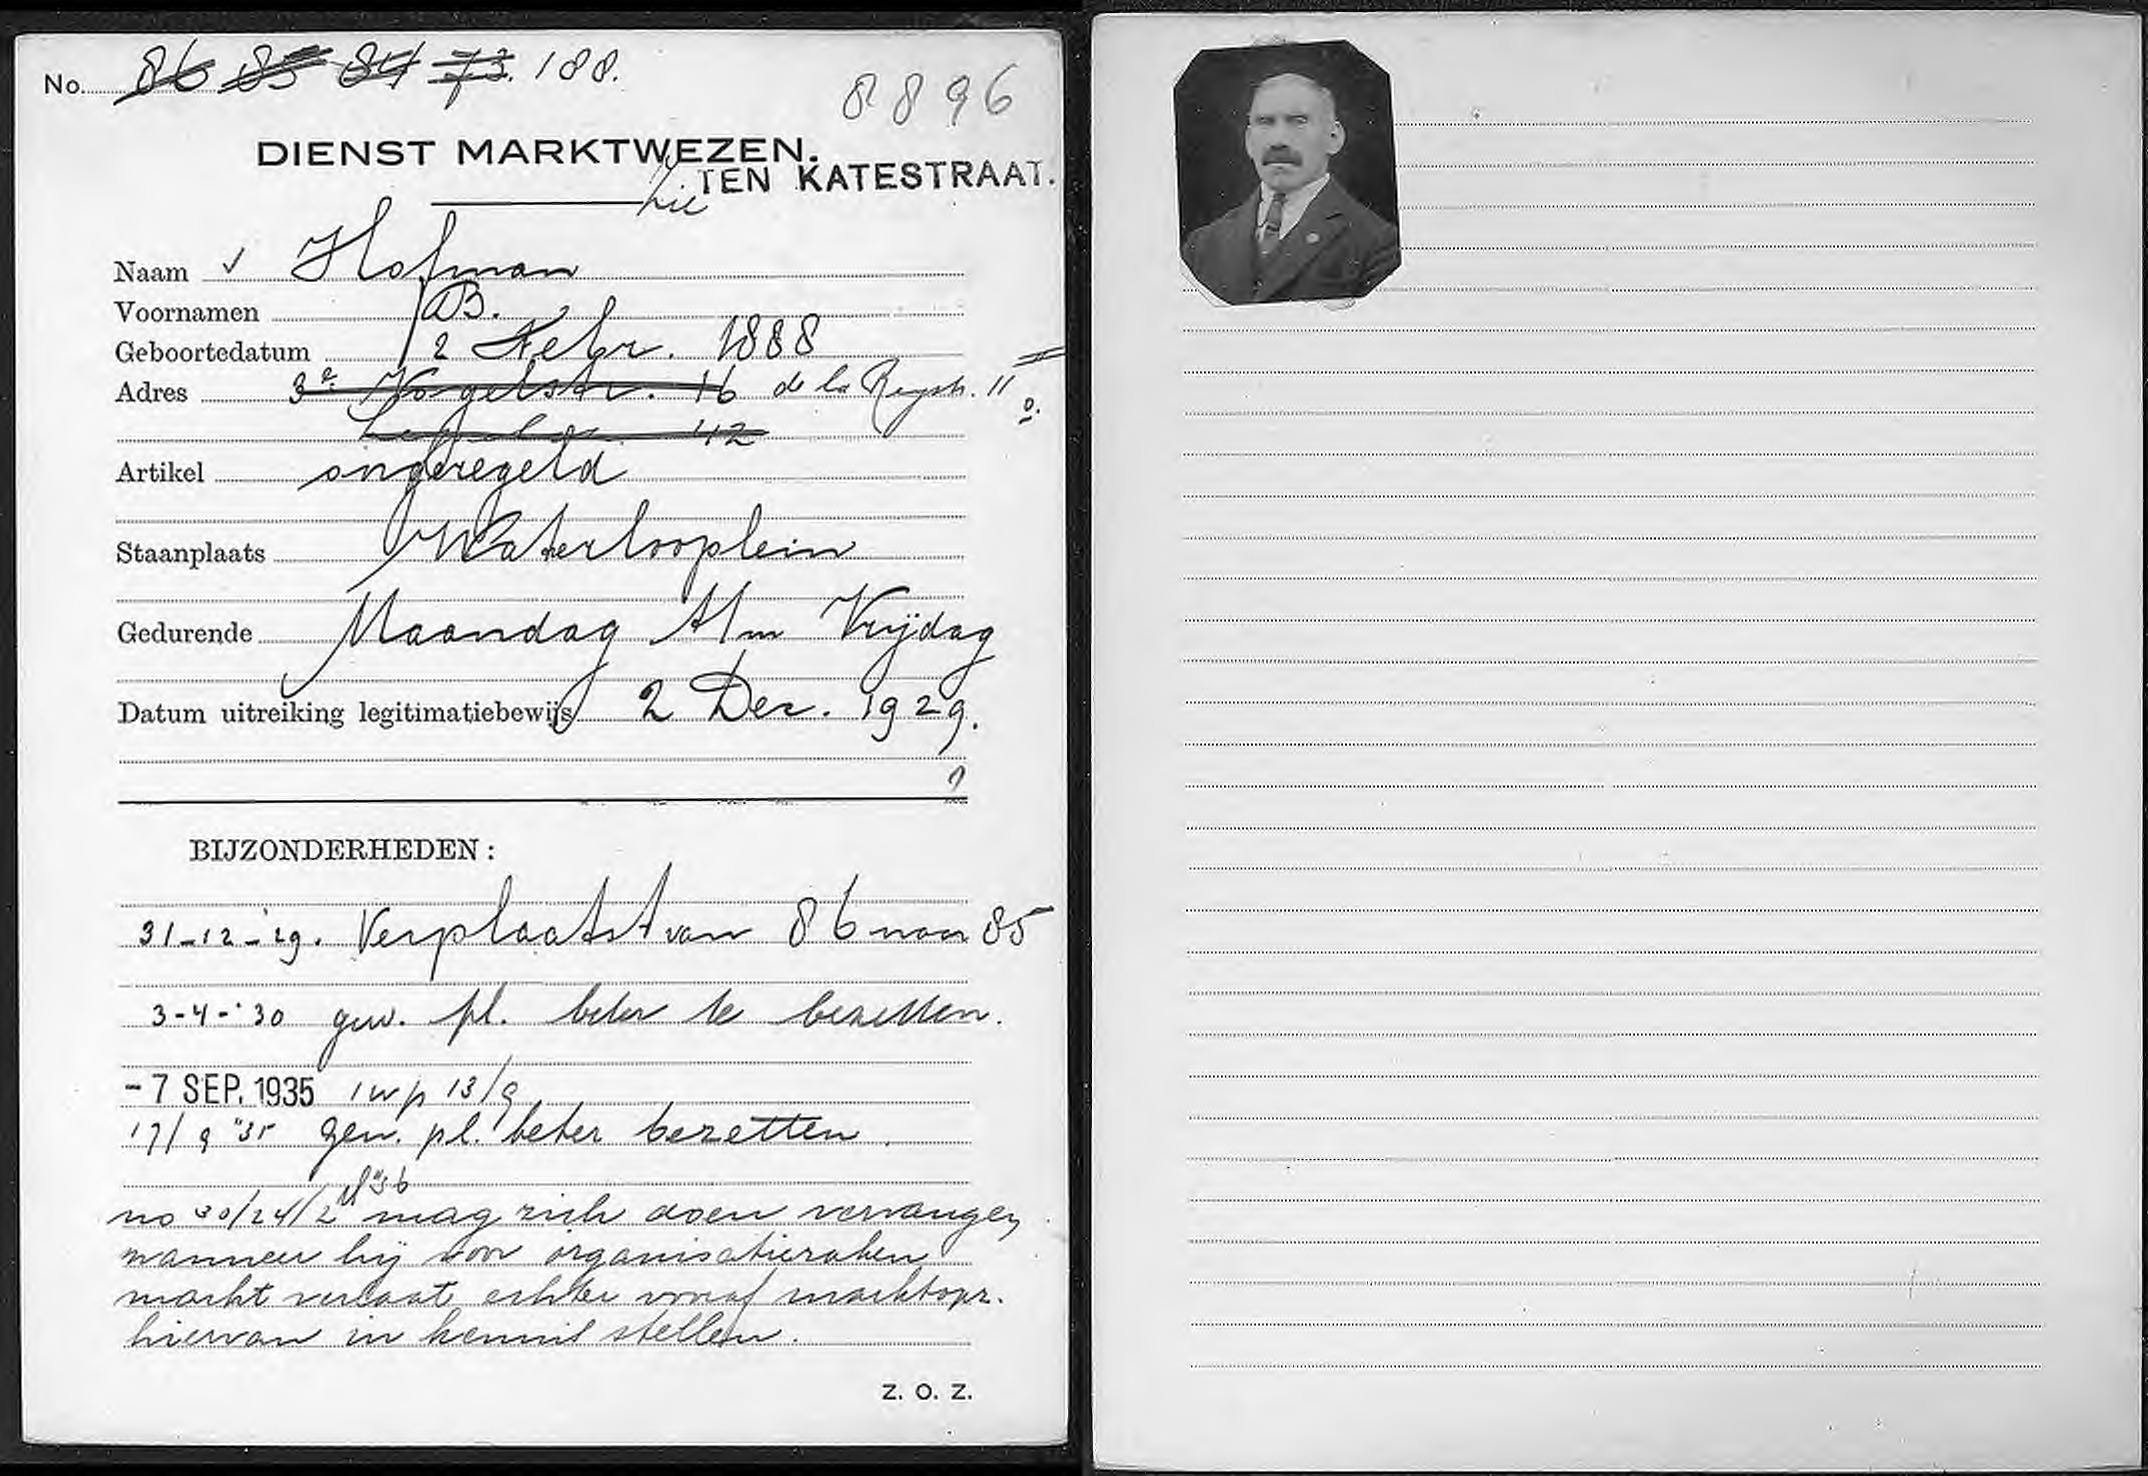 No. 86 85 84 73. 188.
8896
DIENST MARKTWEZEN.
Zie TEN KATESTRAAT.
Naam √ Hofman
Voornamen B.
Geboortedatum 2 Febr. 1888
Adres 3e Vogelstr. 16 de la Reystr. 11
42
Artikel ongeregeld
Staanplaats Waterlooplein
Gedurende Maandag t/m Vrijdag
Datum uitreiking legitimatiebewijs 2 Dec. 1929.
BIJZONDERHEDEN:
31-12-'29. Verplaatst van 86 naar 85
3-4-'30 gew. pl. beter te bezetten.
-7 SEP. 1935 1 wp 13/9
17/9 '35 gew. pl. beter bezetten.
no 30/24/2 '36 mag zich doen vervangen
wanneer hij voor organisatiezaken
markt verlaat echter vooraf marktopz.
hiervan in kennis stellen.
Z. O. Z.